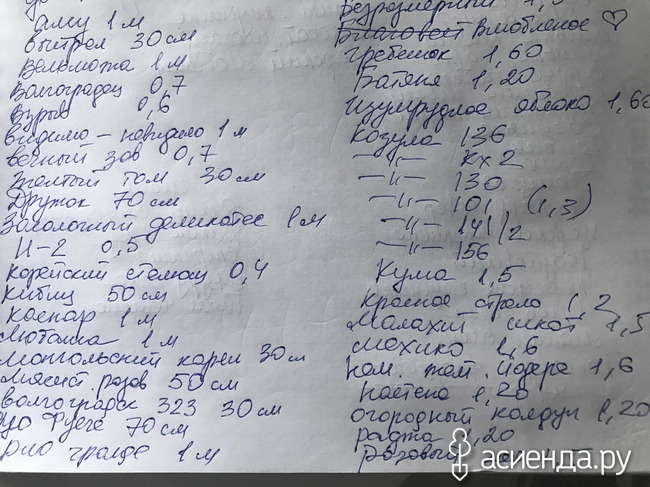 ами 1 м
Выстрел 30 см
Вельможа 1 м
Волгоградец 0,7
Взрыв 0,6
видимо-невидимо 1 м
вечный зов 0,7
Желтый том 30 см
Дружок 70 см
Заморский деликатес 1 м
И-2 0,5
Корейский стемац 0,4
Кибиц 50 см
Каспар 1 м
Любаша 1 м
Монгольский карлик 30 см
Мясист. розов 50 см
Волгоградск 323 30 см
Фуего 70 см
Рио гранде 1 м
Безразмерный 1,5
Влюбленое ♡
гребешок 1,60
Батяня 1,20
Изумрудное яблоко 1,60
Козула 136
—"— Кх 2
—"— 130
—"— 101 (1,3)
—"— 141/2
—"— 156
Кума 1,5
Красное стрела 1,2
Малахит. шкат 1,5
Мохико 1,6
Ном. том. Идера 1,6
Настена 1,20
Огородный колдун 1,20
Раджа 1,20
Розовый
асиенда.ру